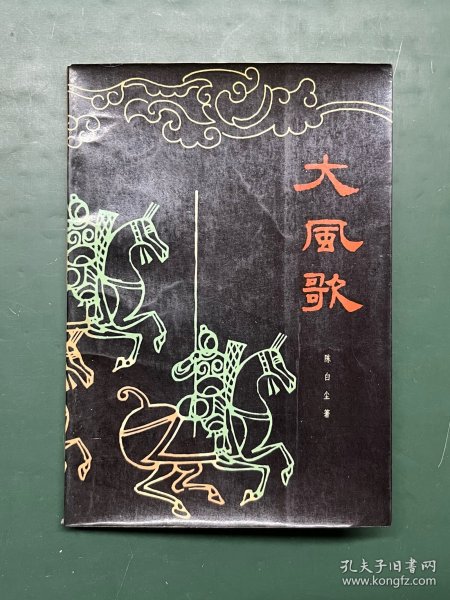 大風歌
陈白尘著
孔夫子旧书网
www.kongfz.com